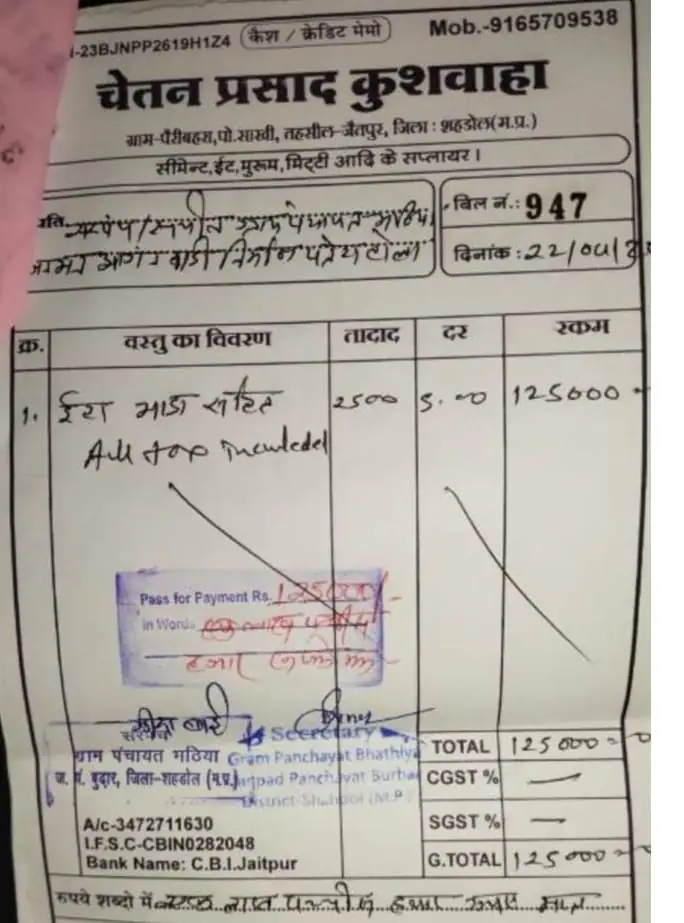 -23BJNPP2619H1Z4 कैश / क्रेडिट मेमो Mob.-9165709538
चेतन प्रसाद कुशवाहा
ग्राम-पैरीबहरा,पो.साखी, तहसील-जैतपुर, जिला : शहडोल(म.प्र.)
सीमेन्ट,ईट,मुरूम,मिट्टी आदि के सप्लायर।
सरपंच/सचीव
बिल नं.: 947
दिनांक : 22/04/
क्र. वस्तु का विवरण तादाद दर रकम
1. ईटा भाडा सहित 2500 5.00 125000
All
Pass for Payment Rs. 125000/-
in Words एक लाख पच्चीस
हजार
सरपंच Secretary
ग्राम पंचायत भठिया Gram Panchayat Bhathiya
ज. पं. बुढार, जिला-शहडोल (म.प्र.) Janpad Panchayat Burhar
District-Shahdol (M.P.)
TOTAL 125000
CGST % —
SGST % —
G.TOTAL 125000
A/c-3472711630
I.F.S.C-CBIN0282048
Bank Name: C.B.I.Jaitpur
रूपये शब्दो में एक लाख पच्चीस हजार रूपए मात्र